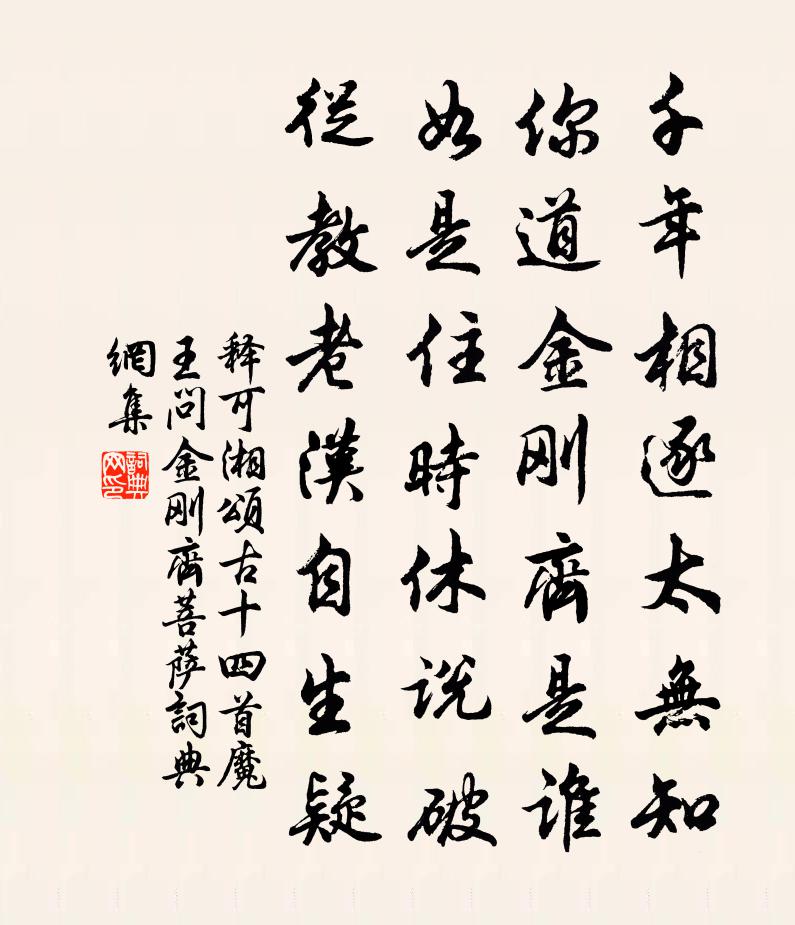 千年相逐太無知
你道金刚齊是誰
如是住時休説破
從教老漢自生疑
释可湘頌古十四首魔
王問金刚齊菩萨詞典
網集
詞典
网印